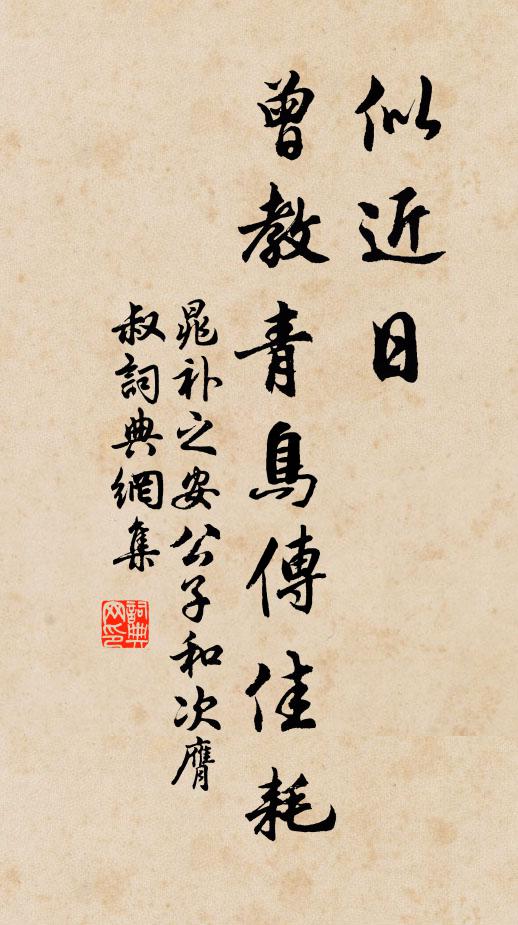 似近日
曾教青鳥傳佳耗
晁补之安公子和次膺
叔詞典網集
詞典
网印